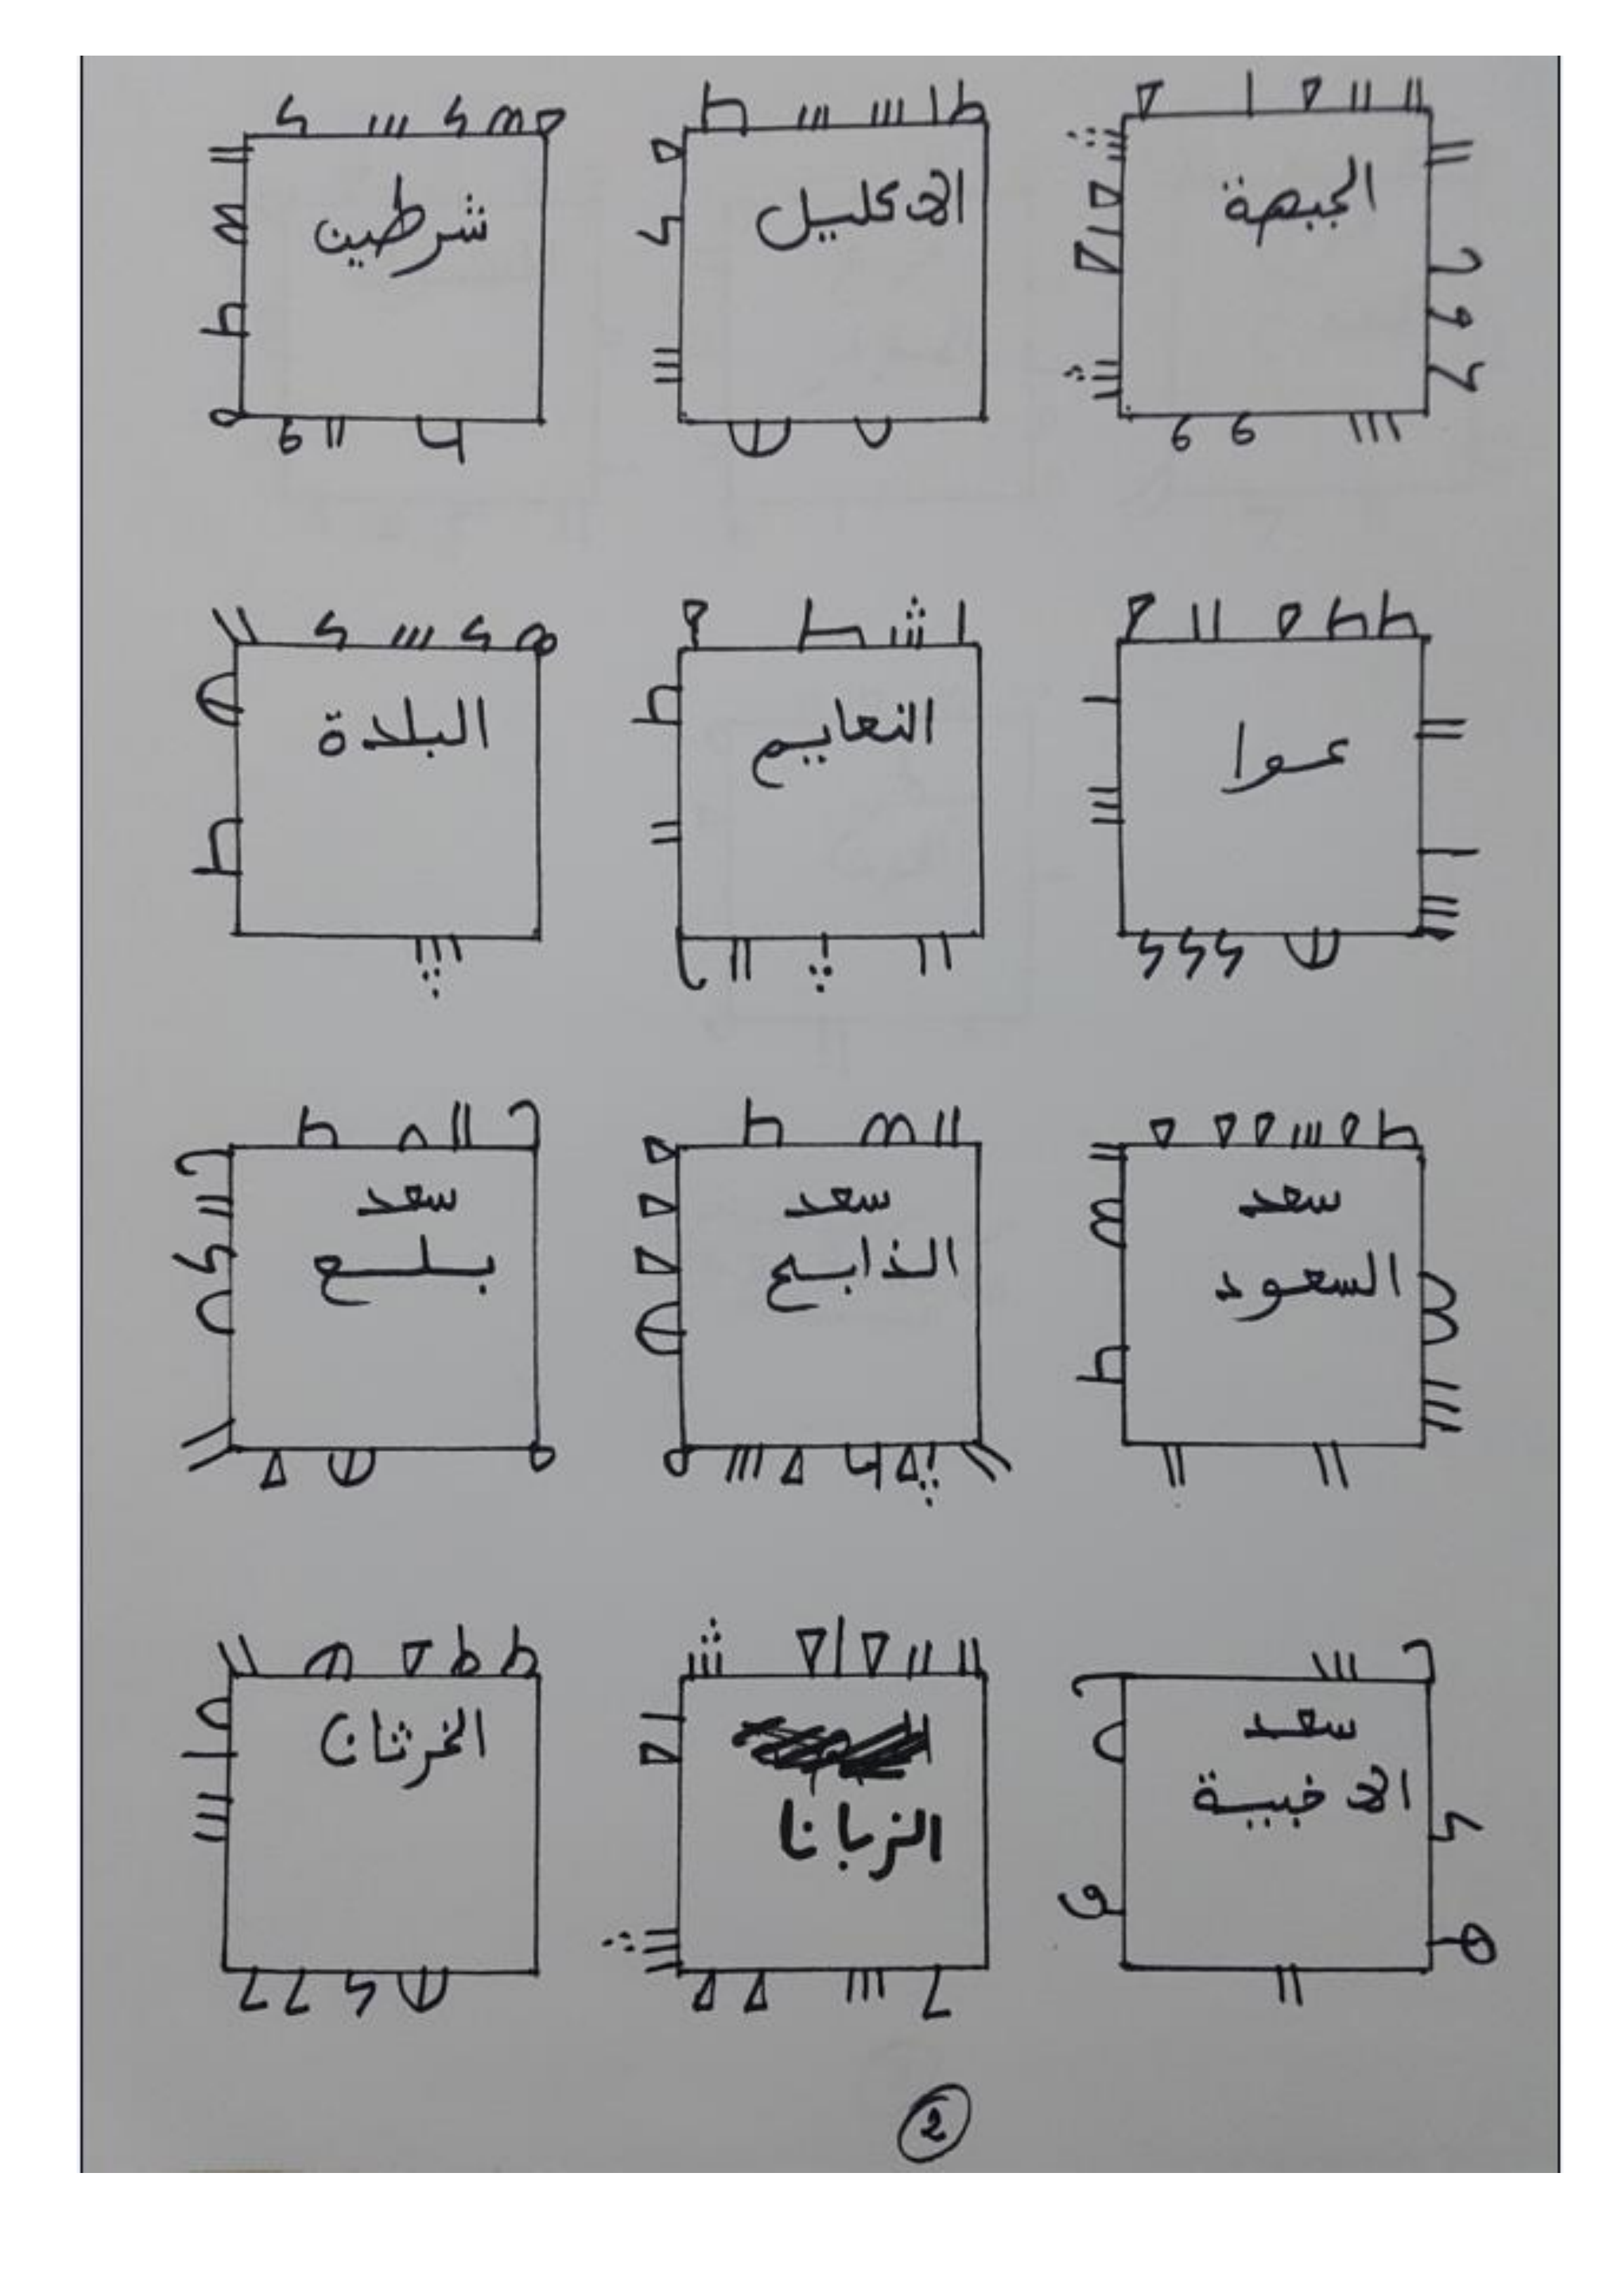 الجبهة
الاكليل
شرطين
عوا
النعايم
البلدة
سعد
السعود
سعد
الذابح
سعد
بلع
سعد
الاخبية
الزبانا
الخرثان
2